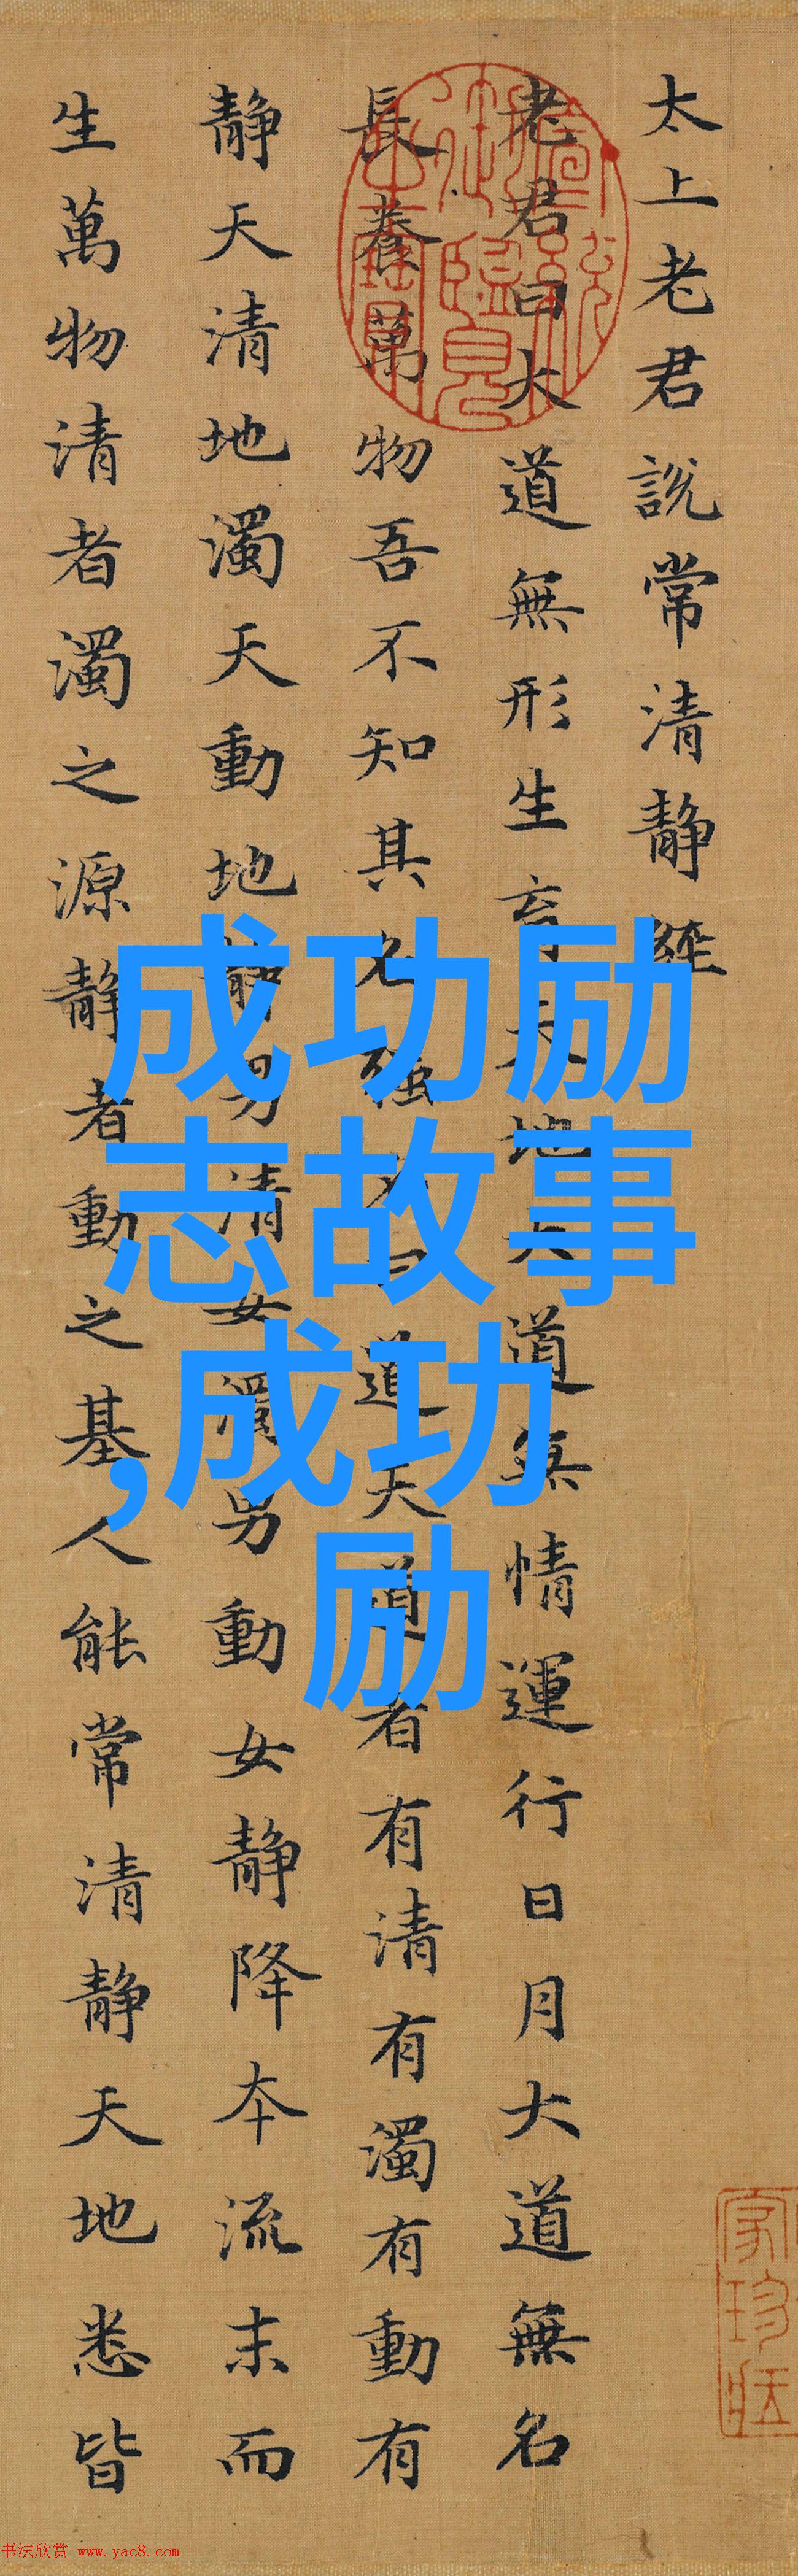 太上老君說常清靜經
老君曰大道無形生育天地大道無情運行日月大道無名
長養萬物吾不知其名強名曰道夫道者有清有濁有動有
靜天清地濁天動地靜男清女濁男動女靜降本流末而
生萬物清者濁之源靜者動之基人能常清靜天地悉皆
成功励
志故事
,成功
励
家珍
书法欣赏 www.yac8.com